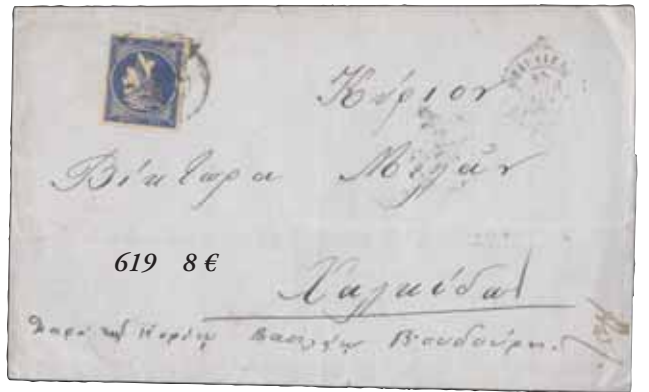 Κύριον
Βίκτωρα Μελᾶν
619 8 €
Χαλκίδα
παρὰ τοῦ Κυρίου Βασιλείου Βουδούρη